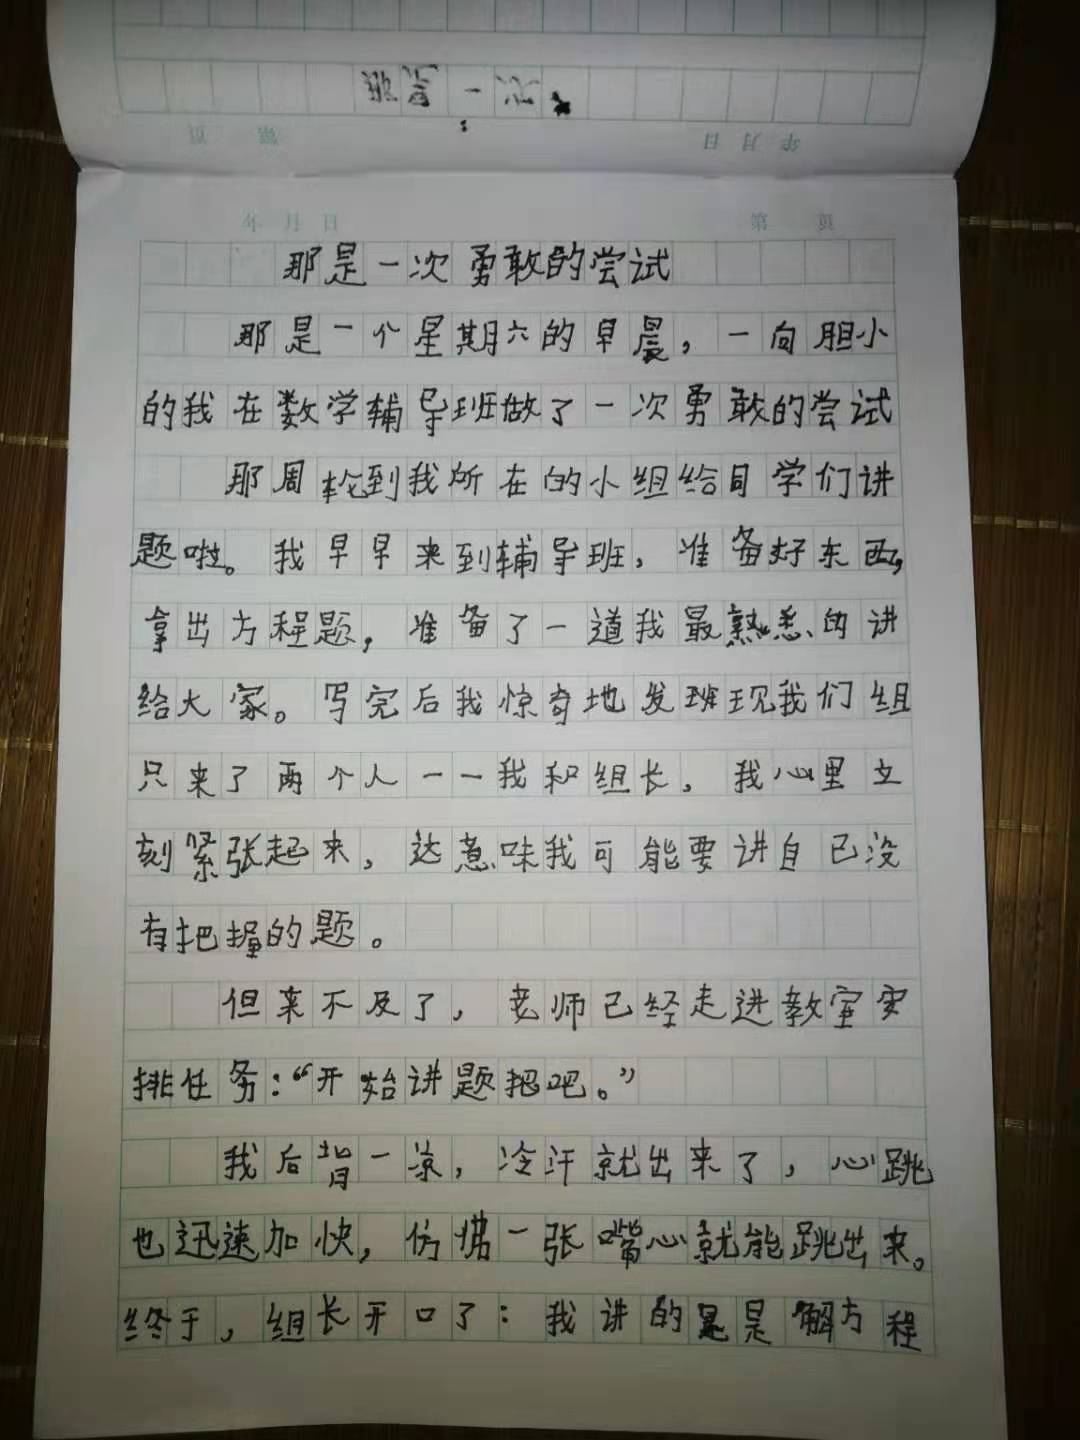 那是一次
年 月 日
第 页
年 月 日
第 页
那是一次勇敢的尝试
那是一个星期六的早晨，一向胆小
的我在数学辅导班做了一次勇敢的尝试
那周轮到我所在的小组给同学们讲
题啦。我早早来到辅导班，准备好东西，
拿出方程题，准备了一道我最熟悉的讲
给大家。写完后我惊奇地发班现我们组
只来了两个人——我和组长，我心里立
刻紧张起来，这意味我可能要讲自己没
有把握的题。
但来不及了，老师已经走进教室安
排任务：“开始讲题把吧。”
我后背一凉，冷汗就出来了，心跳
也迅速加快，仿佛一张嘴心就能跳出来。
终于，组长开口了：我讲的是是解方程